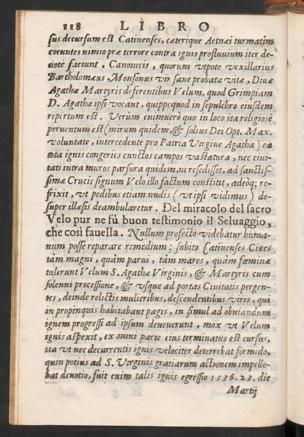 118 LIBRO
sus decursum est Catinenses, cæterique Aetnæi turmatim
coeuntes nimio præ terrore contra ignis profluuium iter de-
uotè faciunt, Canonicis, quorum vtpote vexillarius
Bartholomæus Monsonus vir sanè probatæ vitæ, Diuæ
Agathæ Martyris deferentibus Velum, quod Grimpiam
D. Agathæ ipsi vocant, quippequod in sepulchro eiusdem
repertum est. Verùm enimuerò quo in loco ita religiosè
peruentum est (mirum quidem, & solius Dei Opt. Max.
voluntate, intercedente pro Patria Virgine Agatha) ea
ista ignis congeries cunctos campos vastatura, nec ciui-
tati intra muros parsura quidem, ni resedisset, ad sanctis-
simæ Crucis signum Velo illo factum constitit, adeòq; re-
frixit, vt pedibus etiam nudis (vt ipsi vidimus) de-
super illæsis deambularetur. Del miracolo del sacro
Velo pur ne fù buon testimonio il Seluaggio,
che così fauella. Nullum profectò videbatur huma-
num posse reparare remedium; subitò Catinenses Ciues
tam magni, quàm parui, tàm mares, quàm fœminæ
tulerunt Velum S. Agathæ Virginis, & Martyris cum
solenni processione, & vsque ad portas Ciuitatis pergen-
tes, deinde relictis mulieribus, descendentibus viris, qui
in propinquis habitabant pagis, in simul ad obuiandum
ignem progressi ad ipsum deuenerunt, mox vt Velum
ignis aspexit, ex omni parte eius terminatus est cursus,
ita vt nec decurrentis ignis velociter detereret formido,
quin potius ad S. Virginis gratiarum actionem impelle-
bat deuotio, fuit enim talis ignis egressio 1536. 23. die
Martij